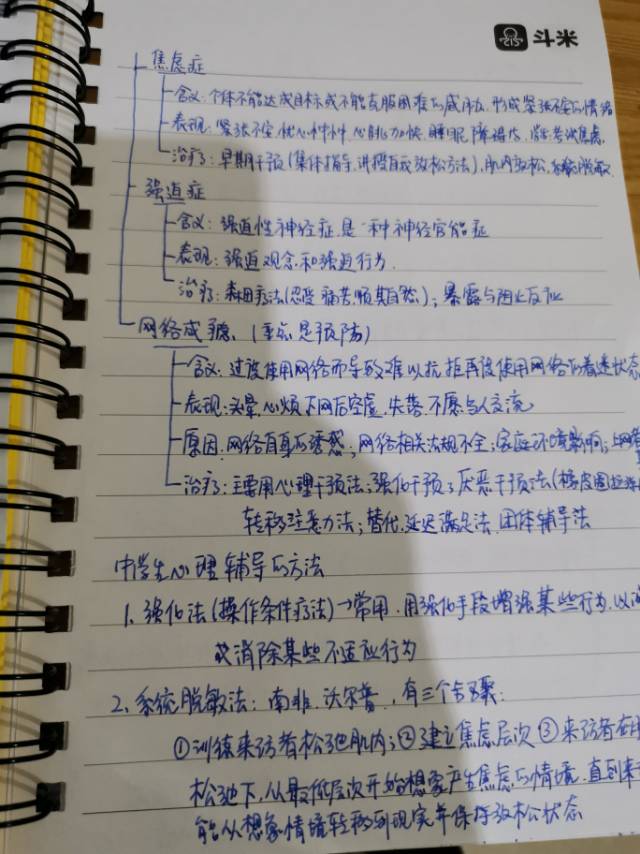 斗米
焦虑症
含义:个体不能达成目标或不能克服困难的威胁,形成紧张不安的情绪
表现:紧张不安,忧心忡忡,心跳加快,睡眠障碍,考试焦虑
治疗:早期干预(集体指导,讲授自我放松方法),肌肉放松,系统脱敏
强迫症
含义:强迫性神经症,是一种神经官能症
表现:强迫观念和强迫行为
治疗:森田疗法(忍受痛苦,顺其自然);暴露与阻止反应
网络成瘾.(重点是预防)
含义:过度使用网络而导致难以抗拒再度使用网络的着迷状态
表现:头晕,心烦,下网后空虚,失落,不愿与人交流
原因:网络自身的诱惑;网络相关法规不全;家庭环境影响;上网
治疗:主要用心理干预法;强化干预;厌恶干预法(橡皮圈
转移注意力法;替代,延迟满足法,团体辅导法
中学生心理辅导的方法
1.强化法(操作条件疗法)→常用.用强化手段增强某些行为,以
或消除某些不适应行为
2.系统脱敏法:南非.沃尔普,有三个步骤:
①训练来访者松弛肌肉;②建立焦虑层次③来访者在
松弛下,从最低层次开始想象产生焦虑的情境.直到来
能从想象情境转移到现实并保持放松状态